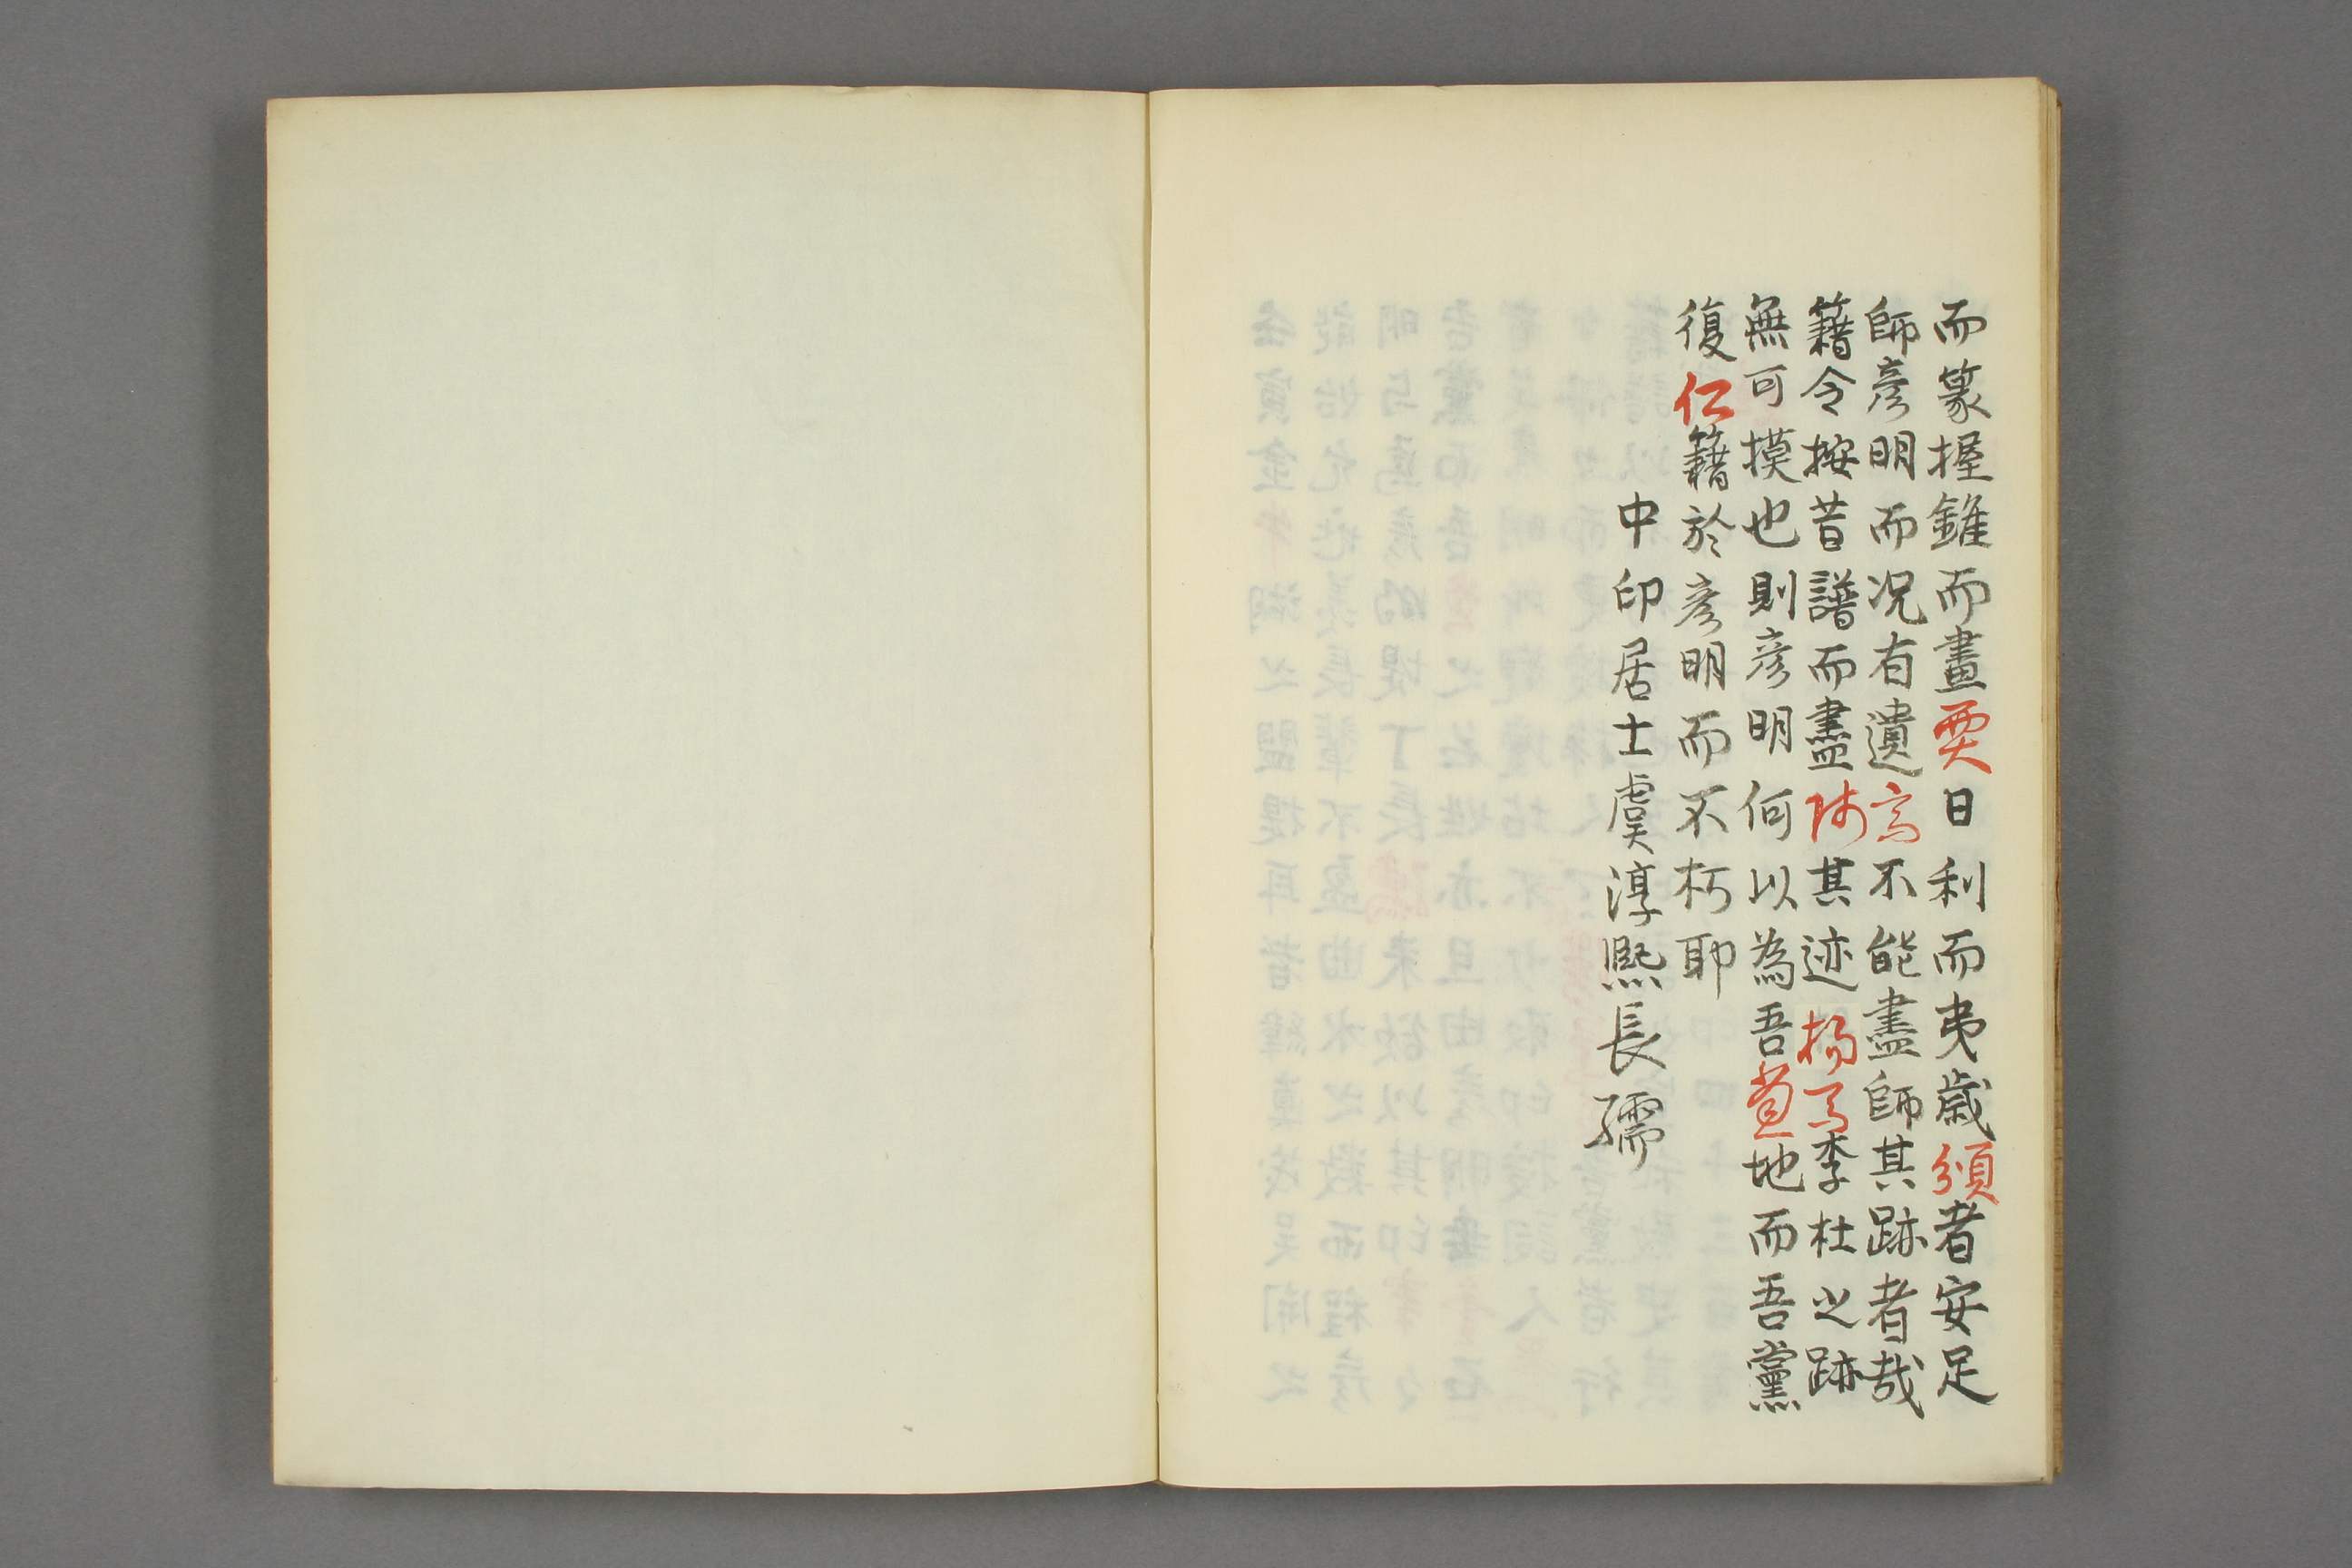 而篆握錐而畫耎日利而夷歲頒者安足
師彥明而况有遺亮不能盡師其跡者哉
籍令按昔譜而盡其迹揚馬李杜之跡
無可摸也則彥明何以為吾地而吾黨
復仁籍於彥明而不朽耶
中印居士虞淳熙長孺